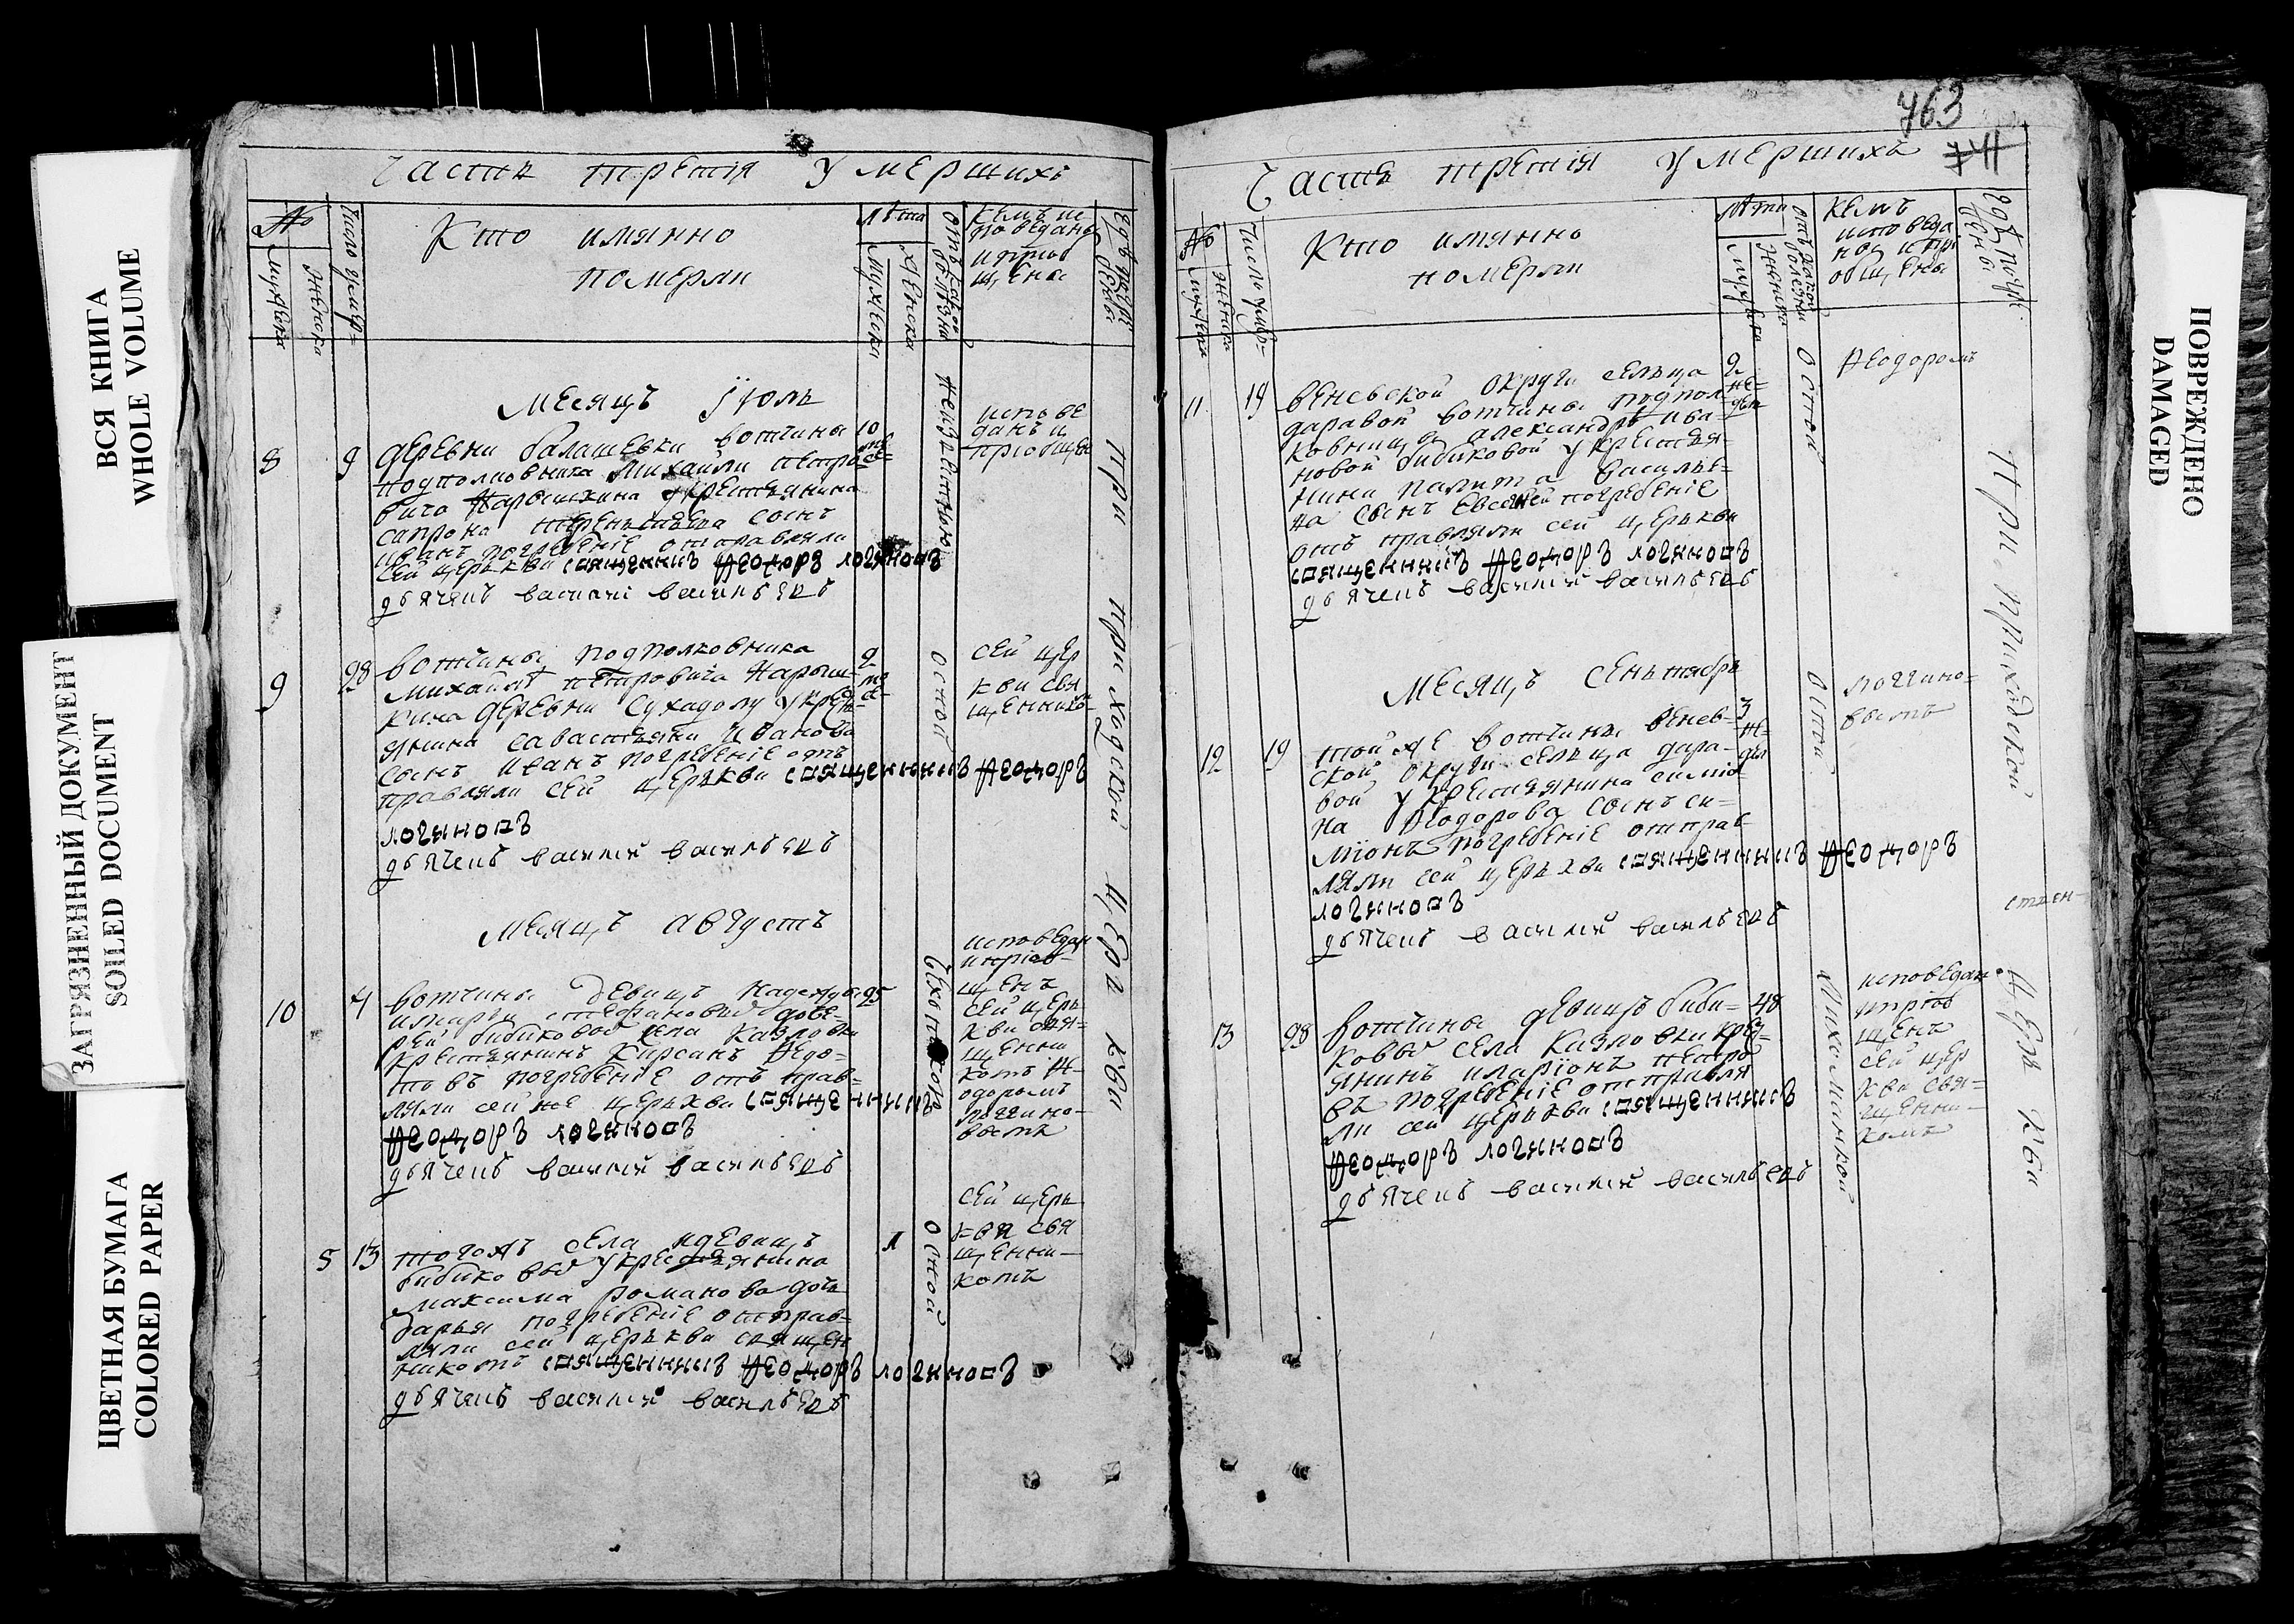 ВСЯ КНИГА
WHOLE VOLUME
ЗАГРЯЗНЕННЫЙ ДОКУМЕНТ
SOILED DOCUMENT
ЦВЕТНАЯ БУМАГА
COLORED PAPER
Часть третiя умершихъ
№
Мужеска
Женска
Число умер=
Кто имянно
померли
лѣта
Мужеска
Женска
отъ какой
болезни
кемъ ис
поведаны
и прiоб
щены
где погре
бены
Месяцъ Iюль
8
9
деревни балашевки вотчины
подполковника Михайли петро
вича Нарышкина укрестьянина
сапрона терентьева сынъ
иванъ погребенiе отправляли
сей церькви священникъ Ѳеодоръ логиновъ
дьячекъ василей васильевъ
10
испове
данъ и
прiобщен
при приходской церькви
9
28
вотчины подполковника
михайлѣ петровича Нарыш=
кина деревни Сухадолу укресть=
янина савастьяна Иванова
сынъ иванъ погребенiе отъ
правляли сей церькви священникъ Ѳеодоръ
логиновъ
дьячекъ василей васильевъ
2
оспой
сей цер
кви свя
щеннико
Месяцъ августъ
10
4
вотчины девицъ Надежды
имарьи стефановых доче=
рей бибиковой села Казловки
крестьянинъ Кирсанъ Ѳедо=
товъ погребенiе отъ прав=
ляли сей же церькви священникъ
Ѳеодоръ логиновъ
дьячекъ василей васильевъ
25
исповедан
ипрiоб=
щенъ
сей церь
кви свя=
щенни
комъ Ѳе
одоромъ
логино=
вымъ
5
13
тогожъ села идевицъ
бибиковых укрестьянина
максима романова дочь
дарья погребенiе отправ=
ляли сей церькви священ
никомъ священникъ Ѳеодоръ логиновъ
дьячекъ василей васильевъ
оспой
сей церь
кви свя
щенни=
комъ
763
741
Часть третiя умершихъ
№
Мужеска
Женска
Число умер=
Кто имянно
померли
лѣта
Мужеска
Женска
отъ какой
болезни
кемъ
исповеда
ны и прi
общены
где погре
бены
11
19
веневской округи сельца
даравой вотчины подпол=
ковницы александры ива=
новой бибиковой укрестья=
нина василье=
ва сынъ Евсей погребенiе
отъ правляли сей церькви
священникъ Ѳеодоръ логиновъ
дьячекъ василей васильевъ
2
не=
дѣли
оспой
Ѳеодоромъ
при приходской
Месяцъ Сеньтябрь
12
19
той же вотчины венев=
ской округи сельца дара=
вой укрестьянина симiо
на Ѳиодорова сынъ си=
мiонъ погребенiе отправ
ляли сей церькви священникъ Ѳеодоръ
логиновъ
дьячекъ василей васильевъ
3
не=
дѣли
оспой
логино=
вымъ
13
28
вотчины девицъ биби=
ковых села Казловки кресть=
янинъ иларiонъ петро
въ погребенiе отправля
ли сей церькви священникъ
Ѳеодоръ логиновъ
дьячекъ василей васильевъ
48
Лихаманкой
исповедан
ипрiоб
щенъ
сей цер
кви свя=
щенни=
комъ
церькви
ПОВРЕЖДЕНО
DAMAGED